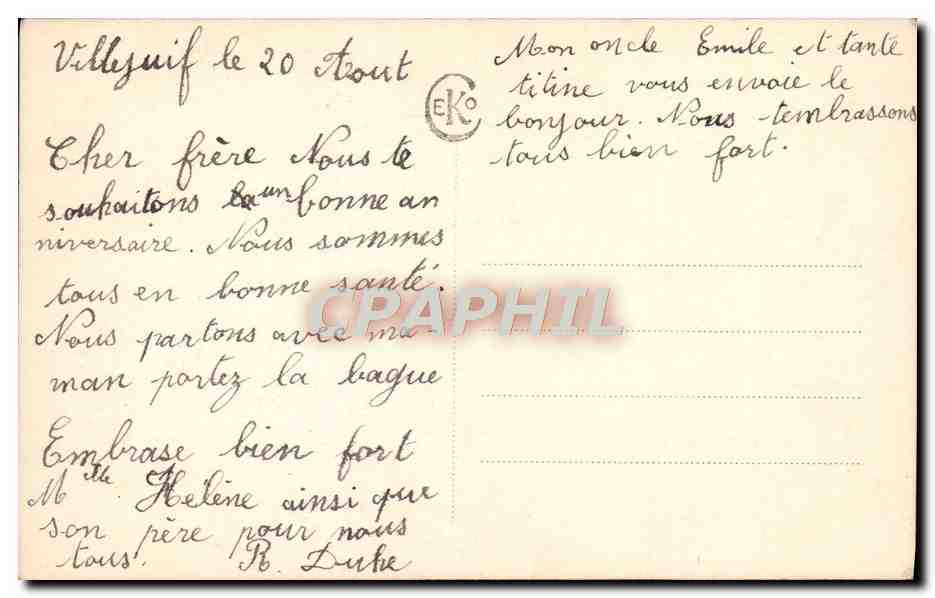 Villejuif le 20 Aout
Cher frère Nous te
souhaitons un bonne an
niversaire. Nous sommes
tous en bonne santé.
Nous partons avec ma-
man portez la bague
Embrase bien fort
Mlle Hélène ainsi que
son père pour nous
tous. R. Duhe
Mon oncle Emile et tante
titine vous envoie le
bonjour. Nous tembrassons
tous bien fort.
EKO
CPAPHIL